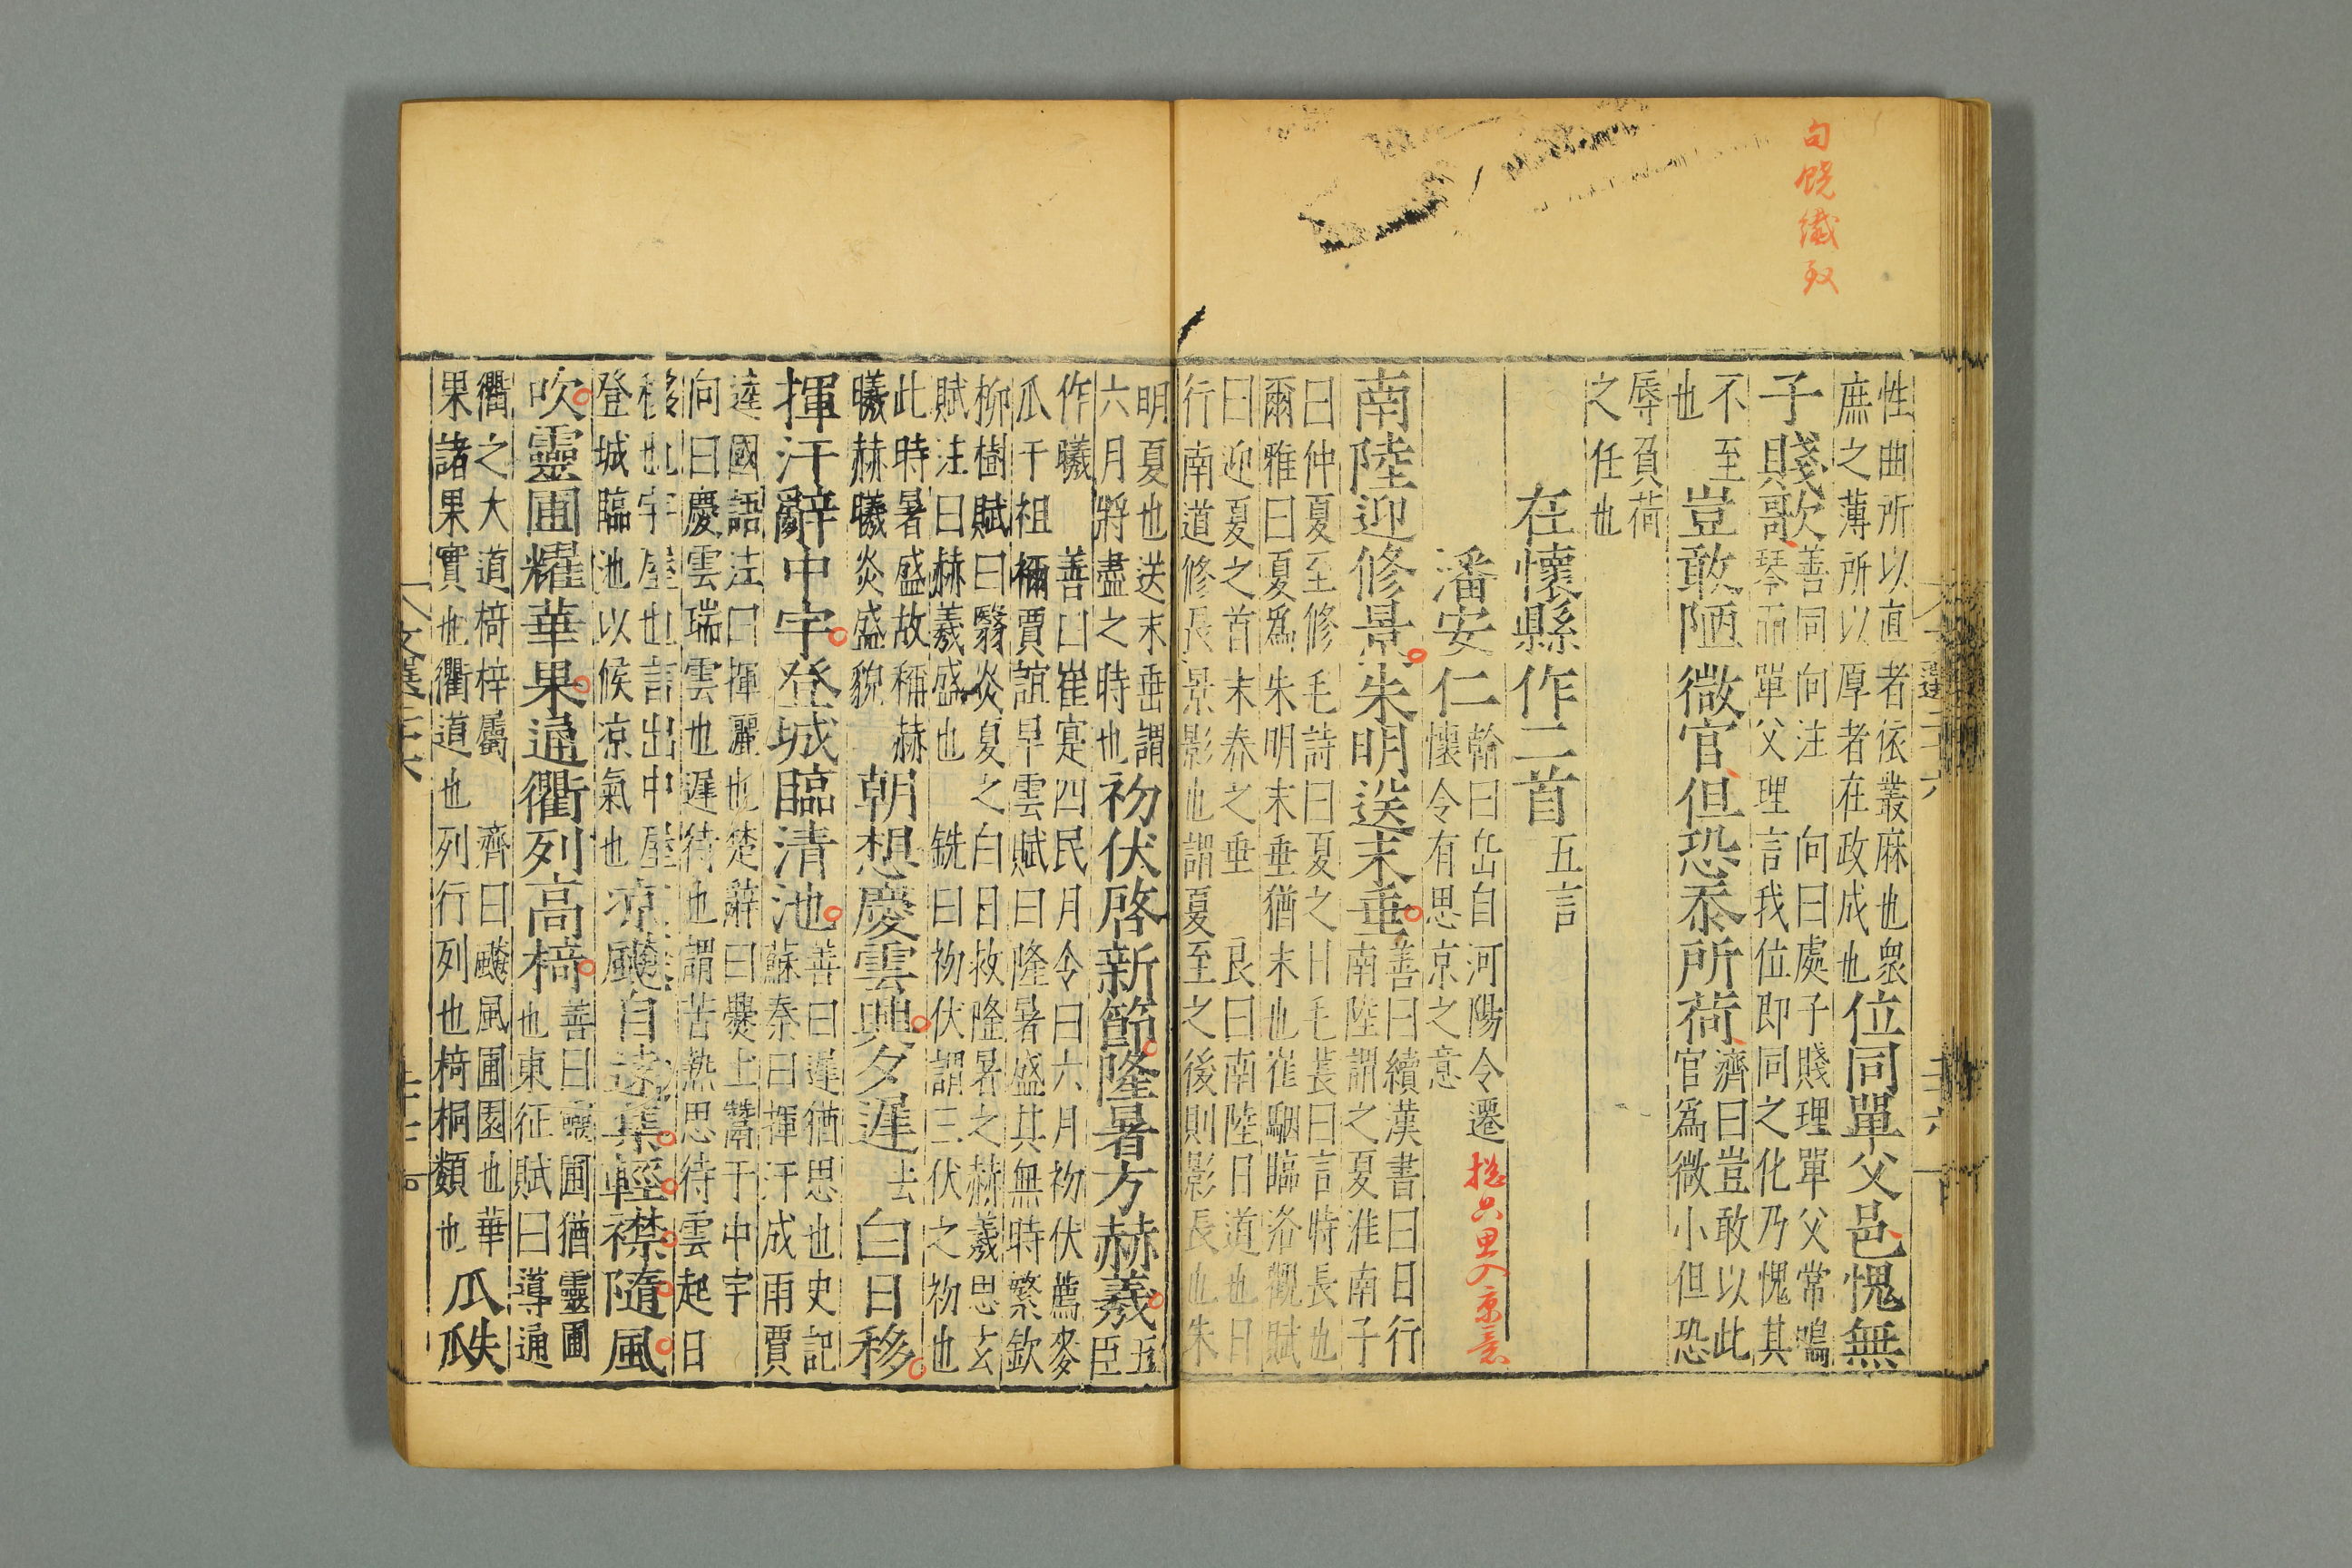 句饒纖致
性曲所以直者依叢麻也衆
庶之薄所以厚者在政成也位同單父邑愧無
子賤歌善同向注向曰處子賤理單父常鳴
琴而單父理言我位即同之化乃愧其
不至
也豈敢陋微官但恐忝所荷濟曰豈敢以此
官爲微小但恐
辱負荷
之任也
在懷縣作二首五言
潘安仁翰曰岳自河陽令遷
懷令有思京之意
入京意
南陸迎修景朱明送末垂善曰續漢書曰日行
南陸謂之夏淮南子
曰仲夏至修毛詩曰夏之日毛萇曰言時長也
爾雅曰夏爲朱明末垂猶末也崔駰臨洛觀賦
曰迎夏之首末春之垂良曰南陸日道也日
行南道修長景影也謂夏至之後則影長也朱
明夏也送末垂謂
六月將盡之時也初伏啓新節隆暑方赫羲五
臣
作曦善曰崔寔四民月令曰六月初伏薦麥
瓜于祖禰賈誼旱雲賦曰隆暑盛其無時繁欽
柳樹賦曰翳炎夏之白日救隆暑之赫羲思玄
賦注曰赫羲盛也銑曰初伏謂三伏之初也
此時暑盛故稱赫
曦赫曦炎盛貌朝想慶雲興夕遲去白日移
揮汗辭中宇登城臨清池善曰遲猶思也史記
蘇秦曰揮汗成雨賈
逵國語注曰揮灑也楚辭曰爨土鬻于中宇
向曰慶雲瑞雲也遲待也謂苦熱思待雲起日
移也宇屋也言出中屋
登城臨池以候涼氣也涼飈自遠集輕襟隨風
吹靈圃耀華果通衢列高椅善曰靈圃猶靈圃
也東征賦曰導通
衢之大道椅梓屬齊曰飈風圃園也華
果諸果實也衢道也列行列也椅桐類也瓜瓞